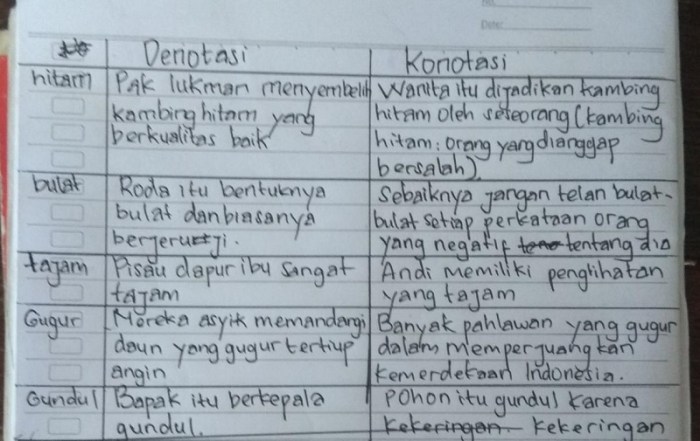 No.
Date:
Denotasi
Konotasi
hitam
Pak lukman menyembelih
kambing hitam yang
berkualitas baik
Wanita itu dijadikan kambing
hitam oleh seseorang (kambing
hitam: orang yang dianggap
bersalah)
bulat
Roda itu bentuknya
bulat dan biasanya
berjeruji.
Sebaiknya jangan telan bulat-
bulat setiap perkataan orang
yang negatif tentang dia
tajam
Pisau dapur ibu sangat
tajam
Andi memiliki penglihatan
yang tajam
Gugur
Mereka asyik memandangi
daun yang gugur tertiup
angin
Banyak pahlawan yang gugur
dalam memperjuangkan
kemerdekaan Indonesia.
Gundul
Bapak itu berkepala
gundul.
Pohon itu gundul karena
kekeringan kekeringan